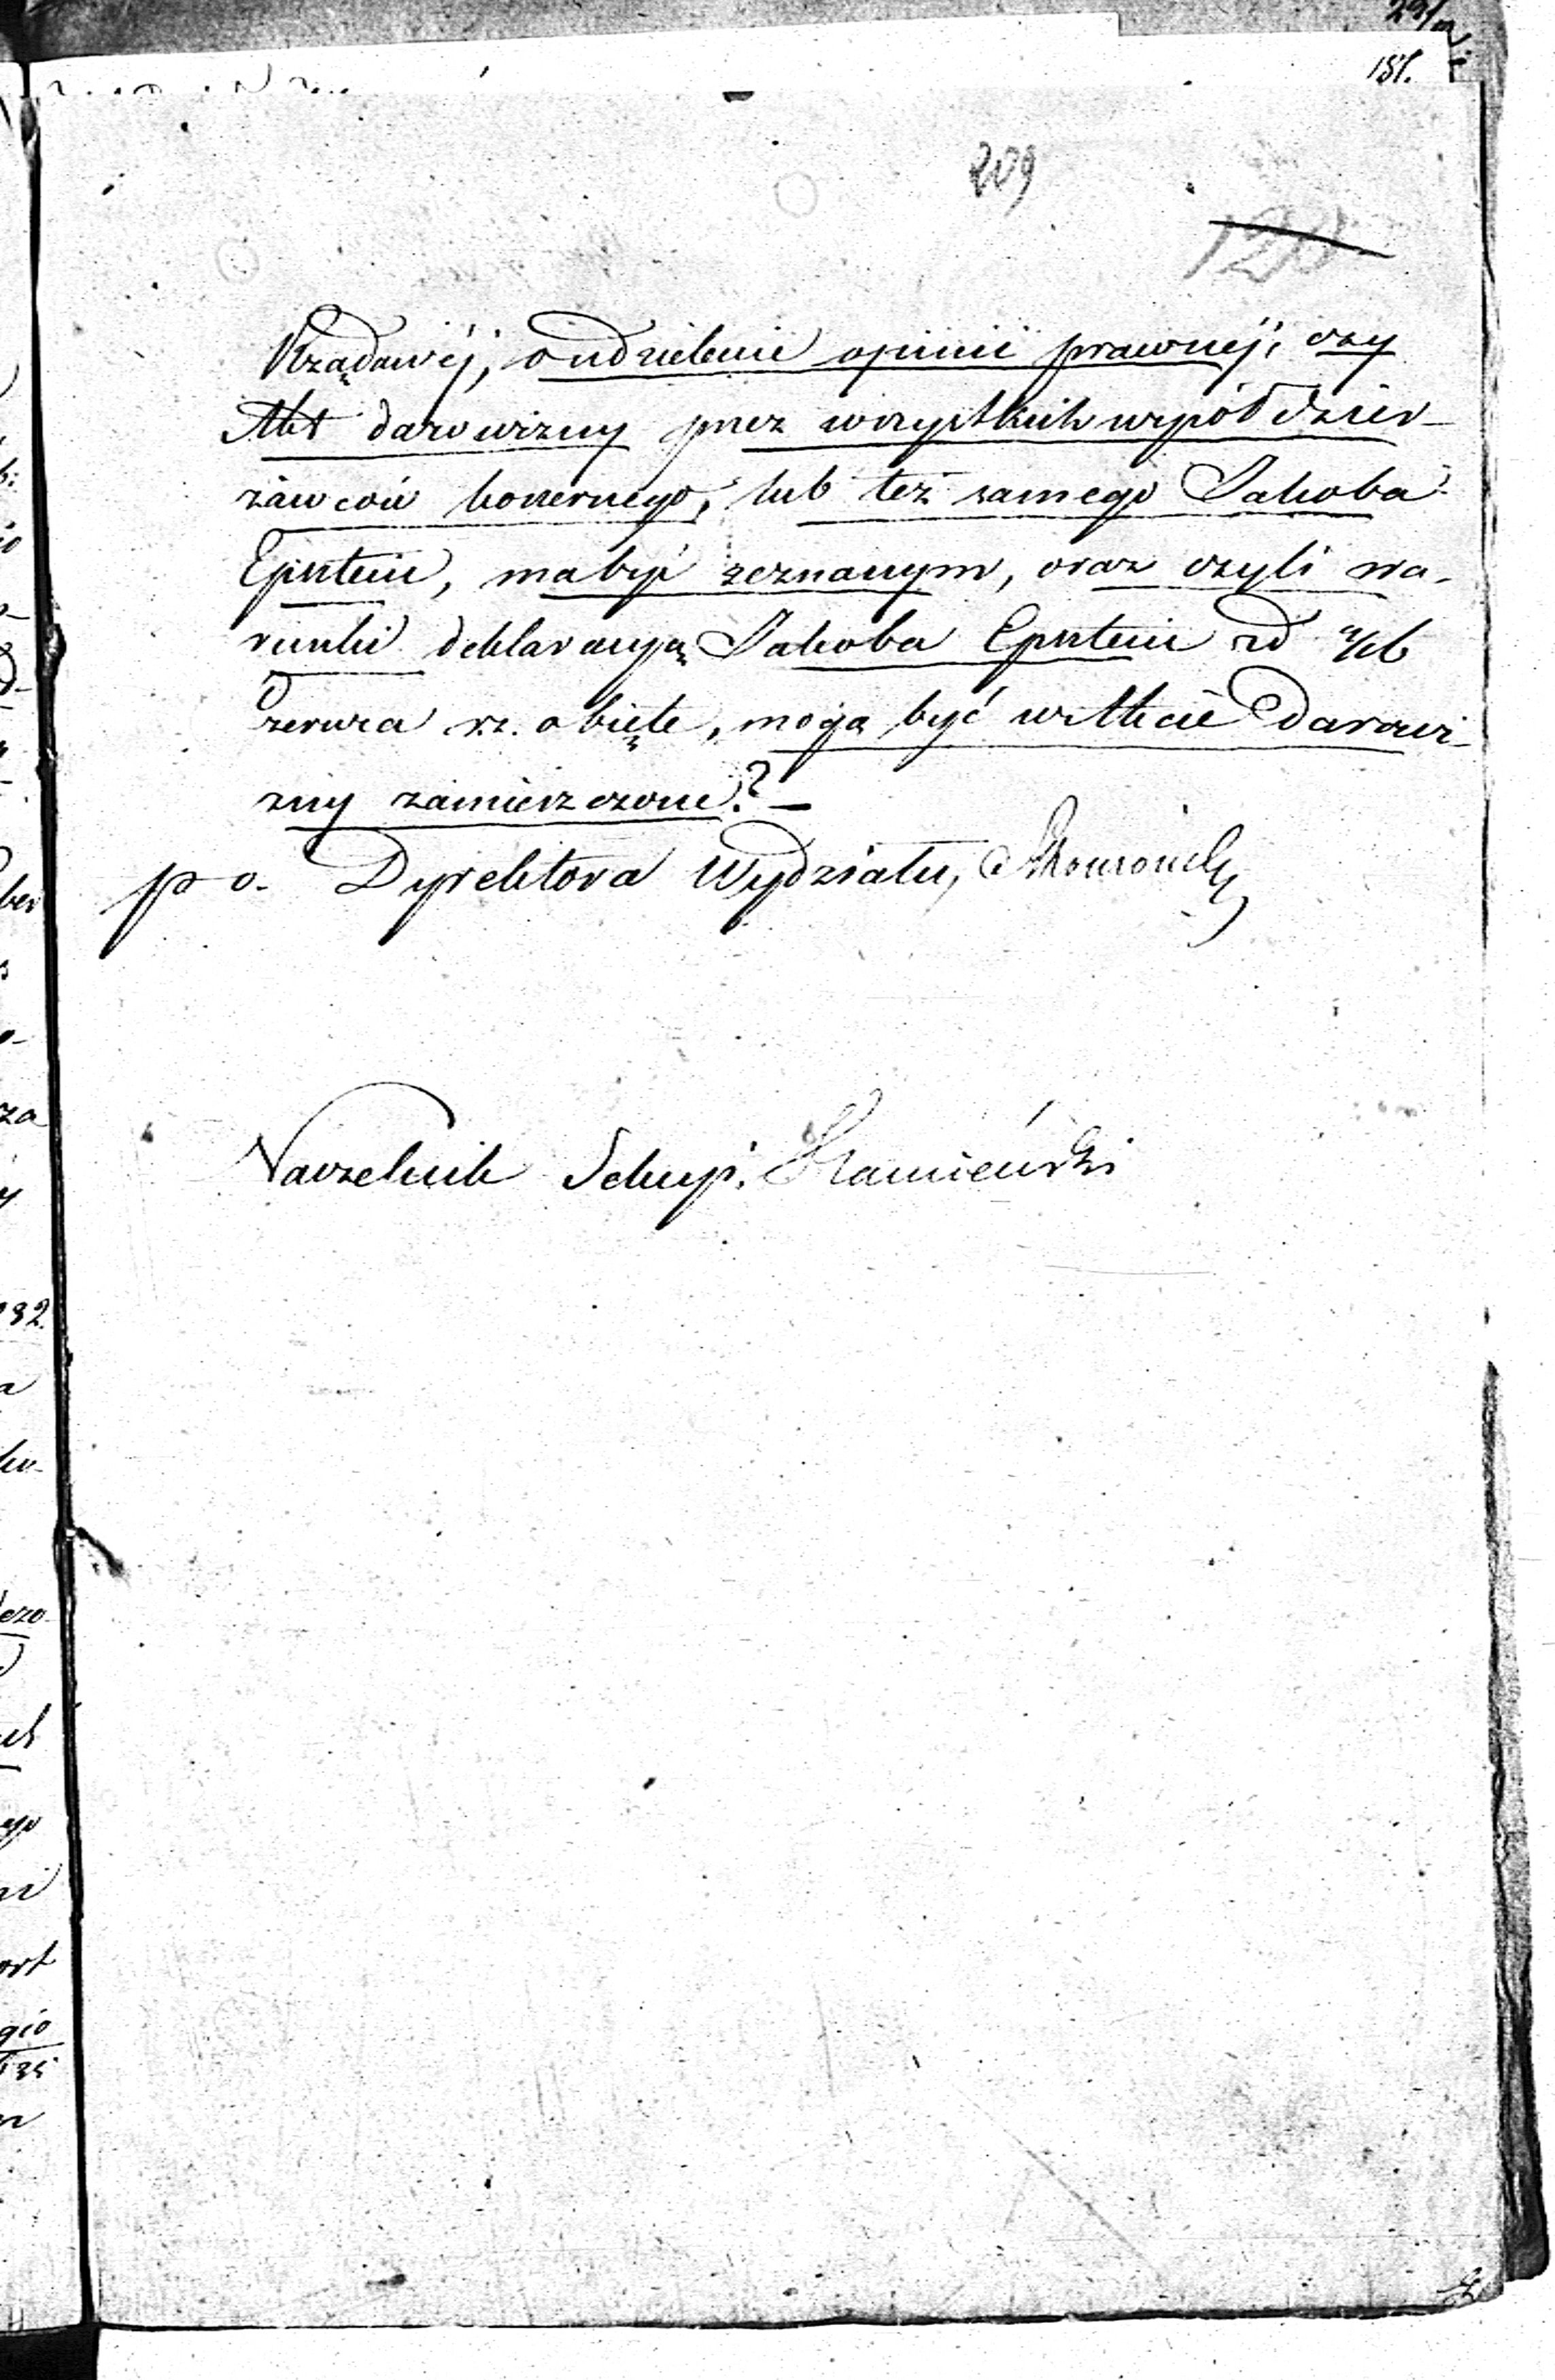 151.
209
120
Rządowéj, o udzielenie opinii prawnéj, czy
Akt darowizny przez wszystkich współdzier-
żawców koszernego, lub też samego Jakoba
Epstein, ma być zeznanym, oraz czyli wa-
runki deklaracyą Jakoba Epstein zd 4/16
Czerwca rz. obięte, mogą być w Akcie Darowi-
zny zamieszczone? –
p o. Dyrektora Wydziału,
Naczelnik Sekcyi. Kamieński